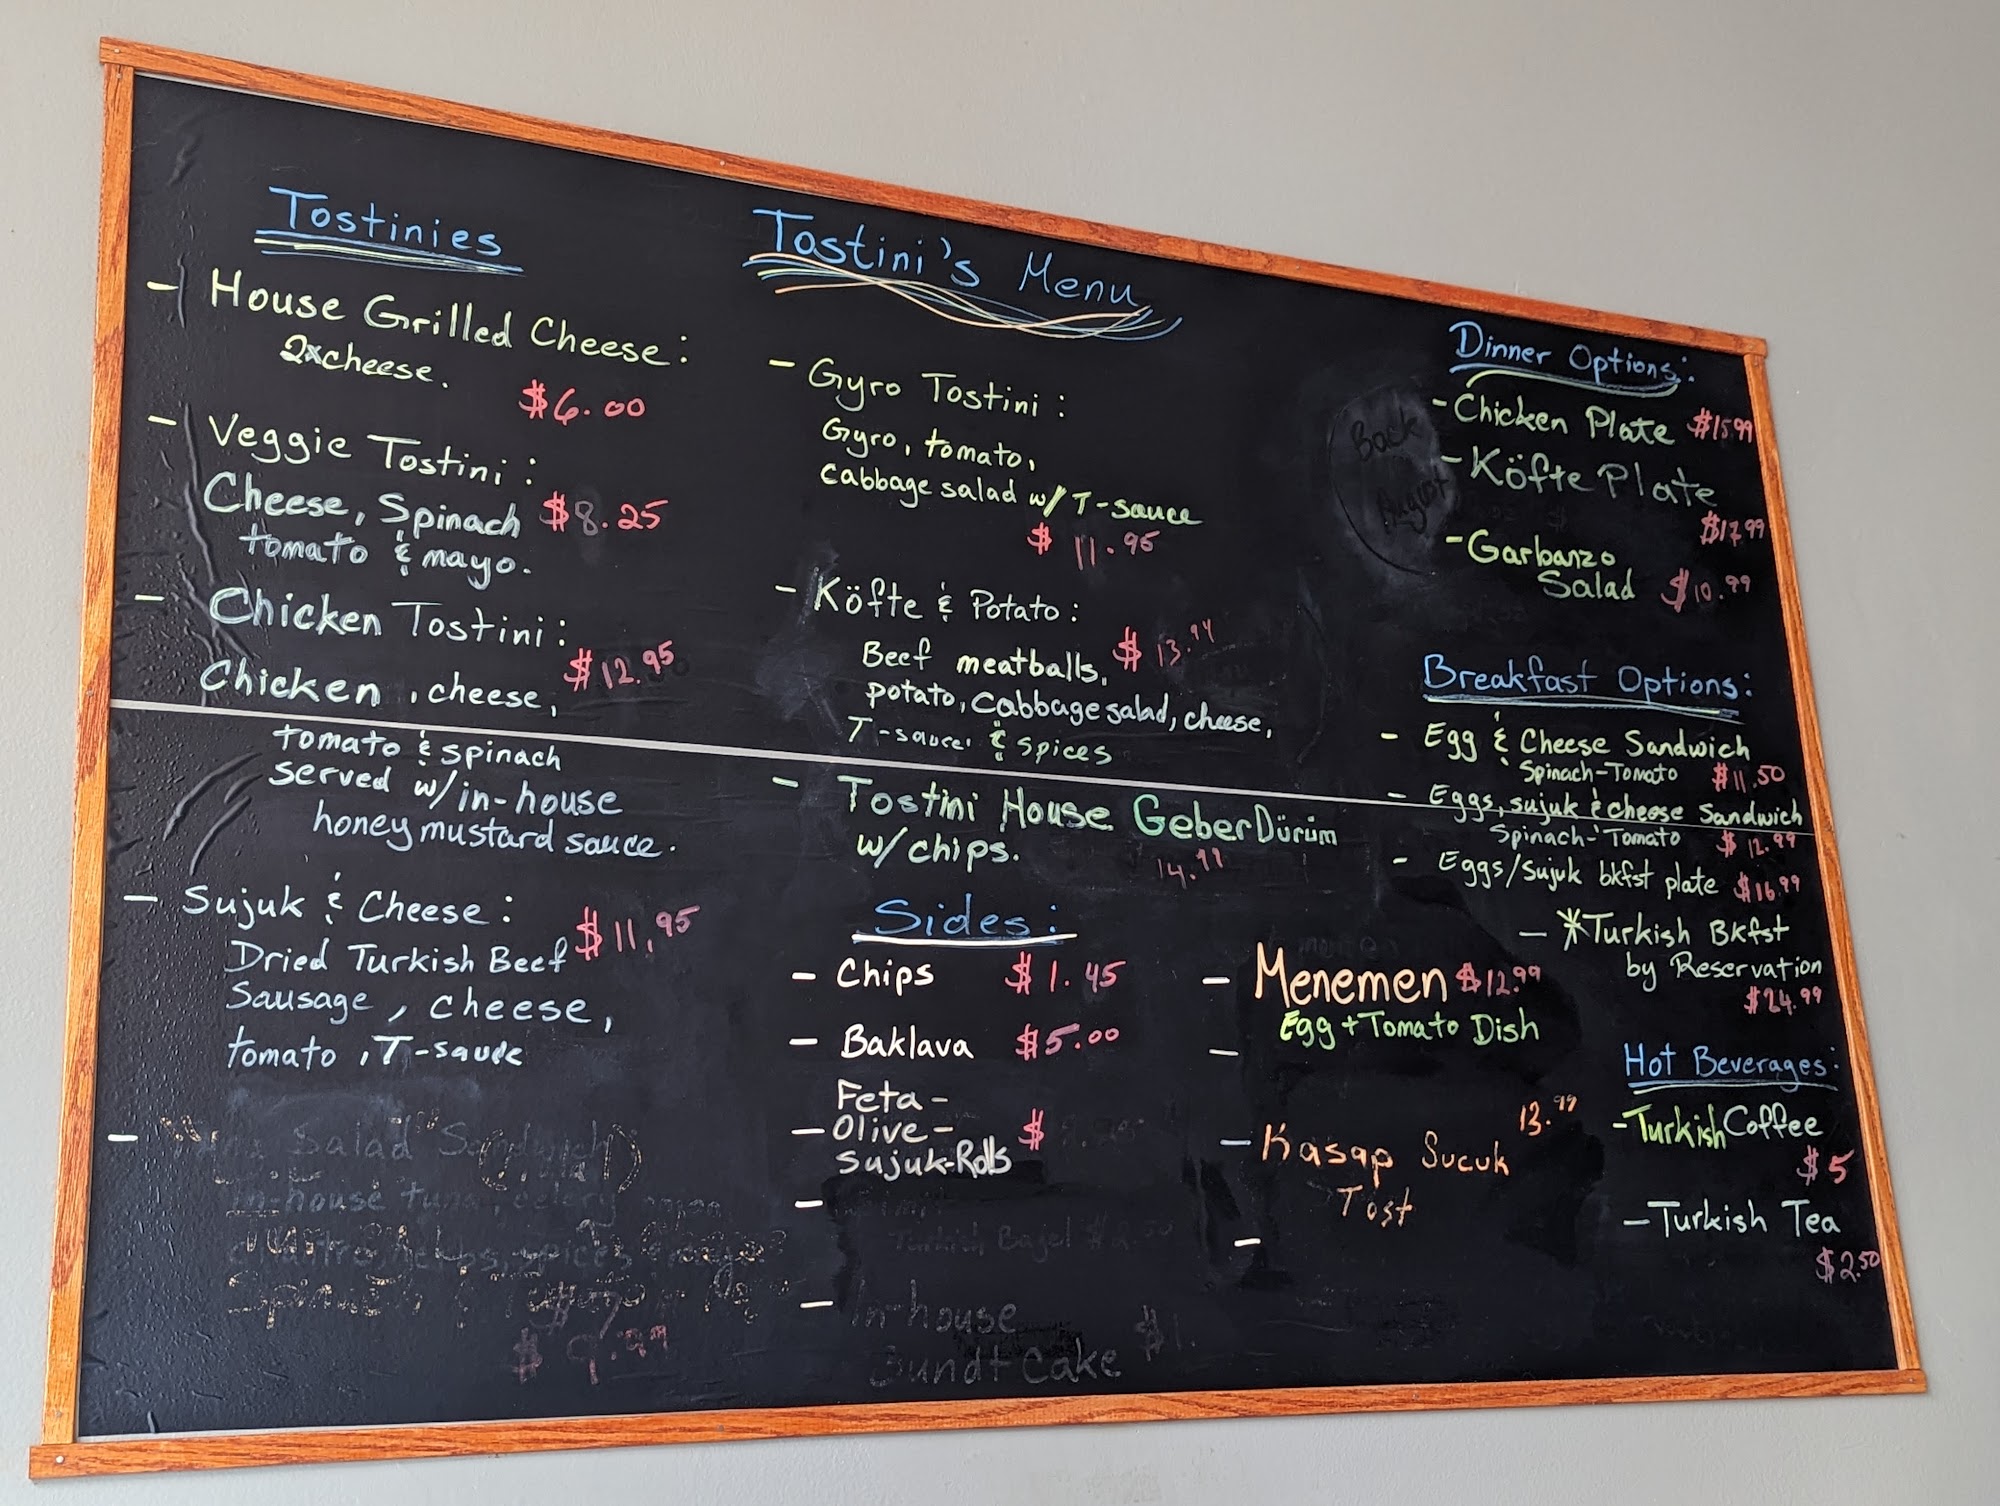 Tostinies
- House Grilled Cheese:
2xcheese.
$6.00
- Veggie Tostini:
Cheese, Spinach $8.25
tomato & mayo.
- Chicken Tostini:
$12.95
Chicken, cheese,
tomato & spinach
served w/in-house
honey mustard sauce.
- Sujuk & Cheese:
$11.95
Dried Turkish Beef
Sausage, cheese,
tomato, T-sauce
- Tuna Salad Sandwich
In-house tuna, celery
$9.99
Tostini's Menu
- Gyro Tostini:
Gyro, tomato,
cabbage salad w/ T-sauce
$11.95
- Köfte & Potato:
Beef meatballs, $13.94
potato, cabbage salad, cheese,
T-sauce, & spices
- Tostini House GeberDürüm
w/chips.
14.99
Sides:
- Chips $1.45
- Baklava $5.00
Feta-
- Olive- $
Sujuk-Rolls
-
Turkish Bagel $2.50
- In-house
Bundt Cake $1.
- Menemen $12.99
Egg + Tomato Dish
-
- Kasap Sucuk 13.99
Tost
-
Back
August
Dinner Options:
- Chicken Plate $15.99
- Köfte Plate
$17.99
- Garbanzo
Salad $10.99
Breakfast Options:
- Egg & Cheese Sandwich
Spinach-Tomato $11.50
- Eggs, sujuk & cheese Sandwich
Spinach-Tomato $12.99
- Eggs/Sujuk bkfst plate $16.99
- *Turkish Bkfst
by Reservation
$24.99
Hot Beverages:
- Turkish Coffee
$5
- Turkish Tea
$2.50